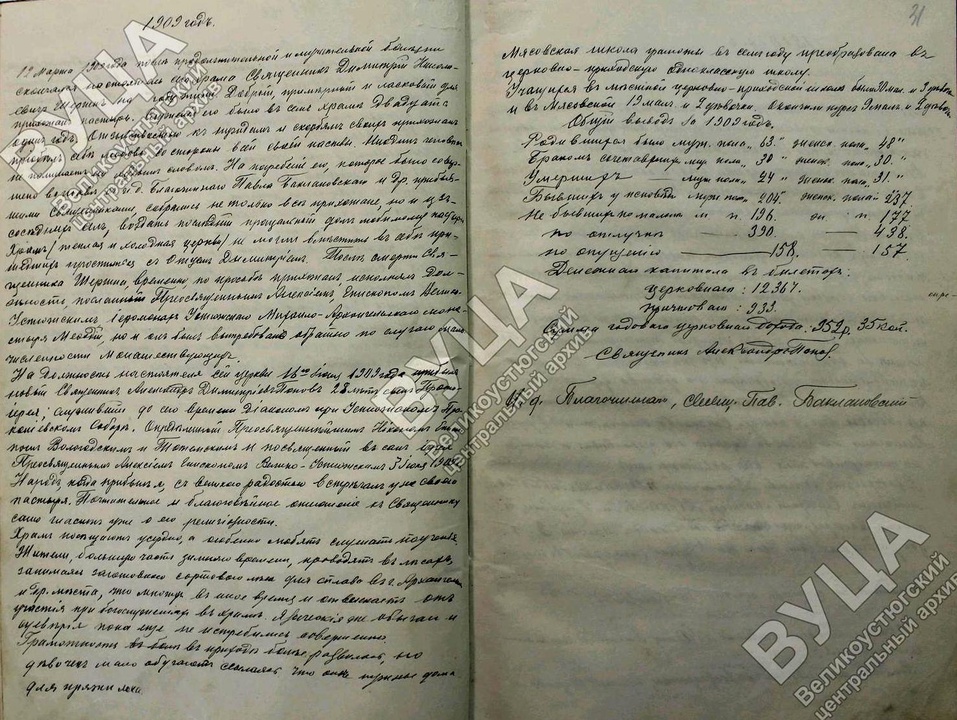 1909 годъ.
12 Марта 1909 года послѣ продолжительной и мучительной болѣзни
скончался настоятель сего храма Священникъ Димитрій Никола-
евичъ Шергинъ
прихожанъ пастырь. Служенія его было въ семъ храмѣ Двадцать
одинъ годъ. къ нуждамъ и скорбямъ своихъ прихожанъ
любовь со стороны всей своей паствы.
не помянетъ словомъ. На погребеніе его, которое было совер-
шено Благочиннаго Павла Баклановскаго и др. прибыв-
шими Священниками, собрались не только всѣ прихожане, но и изъ
сосѣднихъ селъ, воздать послѣдній прощальный долгъ любимому
Храмъ / теплая и холодная церковь / не могли вмѣстить въ себѣ при-
шедшихъ проститься съ Отцомъ Димитріемъ. Послѣ смерти Свя-
щенника Шергина временно по просьбѣ прихожанъ исполнялъ Дол-
жность, посланный Преосвященнымъ Алексіемъ, Епископомъ Велико-
Устюжскимъ іеромонахъ Устюжскаго Михаило-Архангельскаго мона-
стыря но и онъ былъ вытребованъ обратно по случаю мало-
численности Монашествующихъ.
На Должность настоятеля сей церкви 16го Іюня 1909 года прибылъ
новый Священникъ Александръ Димитріевъ Поповъ 28 лѣтъ, сынъ Прото-
іерея; служившій до сего времени Діакономъ при Устюжскомъ Про-
копіевскомъ Соборѣ. Опредѣленный Преосвященнѣйшимъ Никономъ Епис-
копомъ Вологодскимъ и Тотемскимъ и посвященный въ санъ іерея
Преосвященнымъ Алексіемъ Епископомъ Велико-Устюжскимъ Іюня 1909
Народъ, куда прибылъ я, съ великою радостью встрѣчалъ уже своего
пастыря. Почтительное и благоговѣйное отношеніе къ Священнику
само гласитъ уже о его религіозности.
Храмъ посѣщаютъ усердно, а особенно любятъ слушать поученья.
Жители, большую часть зимняго времени, проводятъ въ лѣсахъ,
занимаясь заготовкою сортоваго лѣса для сплава въ г. Архангельскъ
и др. мѣста, что многихъ въ иное время и отвлекаетъ отъ
участія при богослуженіи въ храмѣ. Языческіе же обычаи и
суевѣрія пока еще не истребились совершенно.
Грамотность въ приходѣ болѣе развилась, но
дѣвочекъ мало обучаютъ ссылаясь, что онѣ нужны дома
для пряжи льна.
31
Мясовская школа грамоты въ семъ году преобразована въ
церковно-приходскую одноклассную школу.
Учащихся въ мѣстной церковно-приходской школѣ было мал. и 9 дѣвоч.
и въ Мясовской 19 мал. и 2 дѣвочки. Окончили курсъ 9 мал. и 2 дѣвоч.
Общій выводъ за 1909 годъ.
Родившихся было муж. пола „63" женск. пол. „48"
Бракомъ сочетавшихся муж. пола „30" женск. пол. „30."
Умершихъ — муж. пола „24" женск. пол. „31."
Бывшихъ у исповѣди муж. пол. „204. женск. пола 237.
Не бывшихъ по малол. м. п. 196. ж. п. 177
по отлучкѣ — 390 — 438.
по опущенію — 158. 157.
Денежнаго капитала въ билетахъ:
церковнаго: 12367.
причтоваго: 933.
Сумма годоваго церковнаго: 952 р. 35 коп.
Священникъ Александръ Поповъ.
И. д. Благочиннаго, Свящ. Пав. Баклановскій
ВУЦА
Великоустюгский
центральный архив
ВУЦА
Великоустюгский
центральный архив
ВУЦА
Великоустюгский
центральный архив